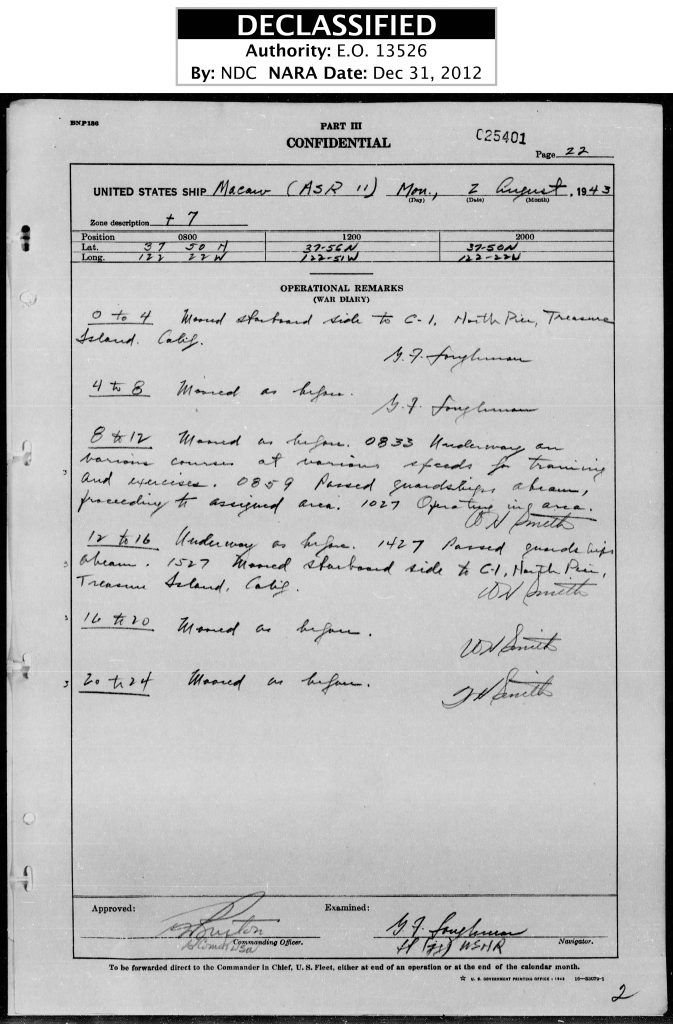 DECLASSIFIED
Authority: E.O. 13526
By: NDC NARA Date: Dec 31, 2012
BNP186
PART III
CONFIDENTIAL
C25401
Page 22
UNITED STATES SHIP Macaw (ASR 11) Mon., 2 August, 1943
(Day) (Date) (Month)
Zone description + 7
Position 0800 1200 2000
Lat. 37 50 N 37-56N 37-50N
Long. 122 22W 122-51W 122-22W
OPERATIONAL REMARKS
(WAR DIARY)
0 to 4 Moored starboard side to C-1, North Pier, Treasure
Island. Calif.
G. F.
4 to 8 Moored as before.
G. F.
8 to 12 Moored as before. 0833 Underway on
various courses at various speeds for training
and exercises. 0859 Passed guardships abeam,
proceeding to assigned area. 1027 Operating in area.
W N Smith
12 to 16 Underway as before. 1427 Passed guardships
abeam. 1527 Moored starboard side to C-1, North Pier,
Treasure Island, Calif. W N Smith
16 to 20 Moored as before.
W N Smith
20 to 24 Moored as before.
Smith
Approved: Examined:
G. F.
Commanding Officer. USNR Navigator.
To be forwarded direct to the Commander in Chief, U. S. Fleet, either at end of an operation or at the end of the calendar month.
U. S. GOVERNMENT PRINTING OFFICE : 1942
2